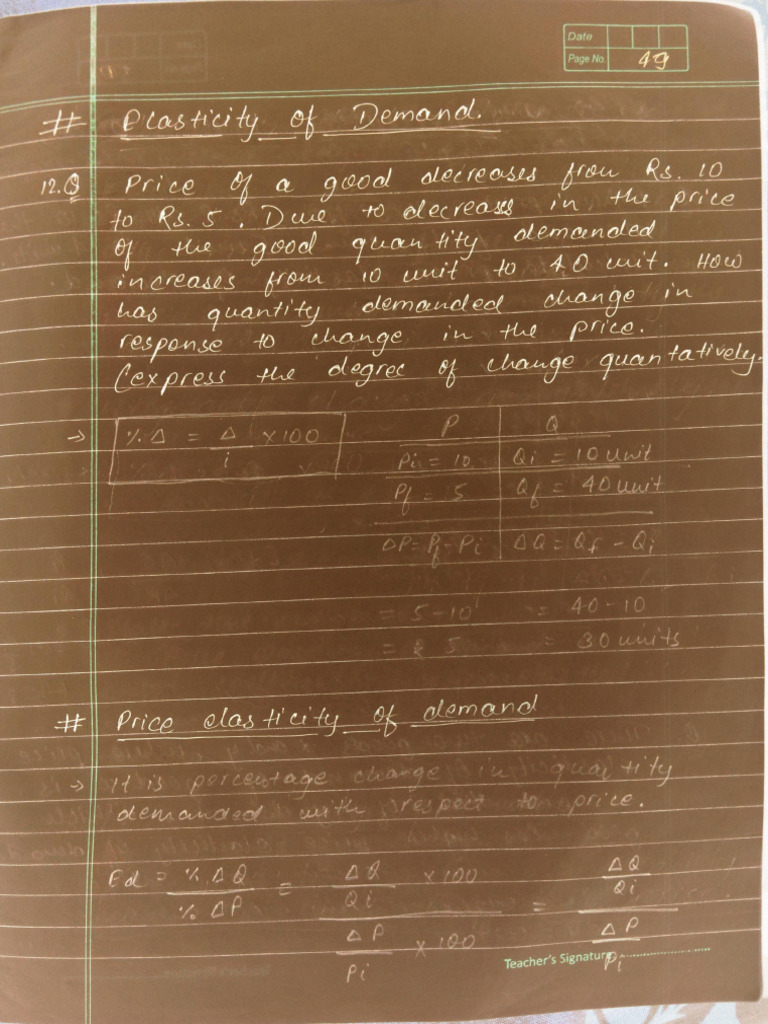 Date
Page No. 49
# Elasticity of Demand.
12.Q Price of a good decreases from Rs. 10
to Rs. 5. Due to decreass in the price
of the good quantity demanded
increases from 10 unit to 40 unit. How
has quantity demanded change in
response to change in the price.
(express the degree of change quantatively.
→ % Δ = Δ/i × 100
P Q
Pi = 10 Qi = 10 unit
Pf = 5 Qf = 40 unit
ΔP = Pf - Pi ΔQ = Qf - Qi
= 5 - 10 = 40 - 10
= 5 = 30 units
# Price elasticity of demand
→ It is percentage change in quatity
demanded with respect to price.
Ed = % ΔQ / % ΔP = ΔQ/Qi × 100 / ΔP/Pi × 100 = ΔQ/Qi / ΔP/Pi
Teacher's Signature